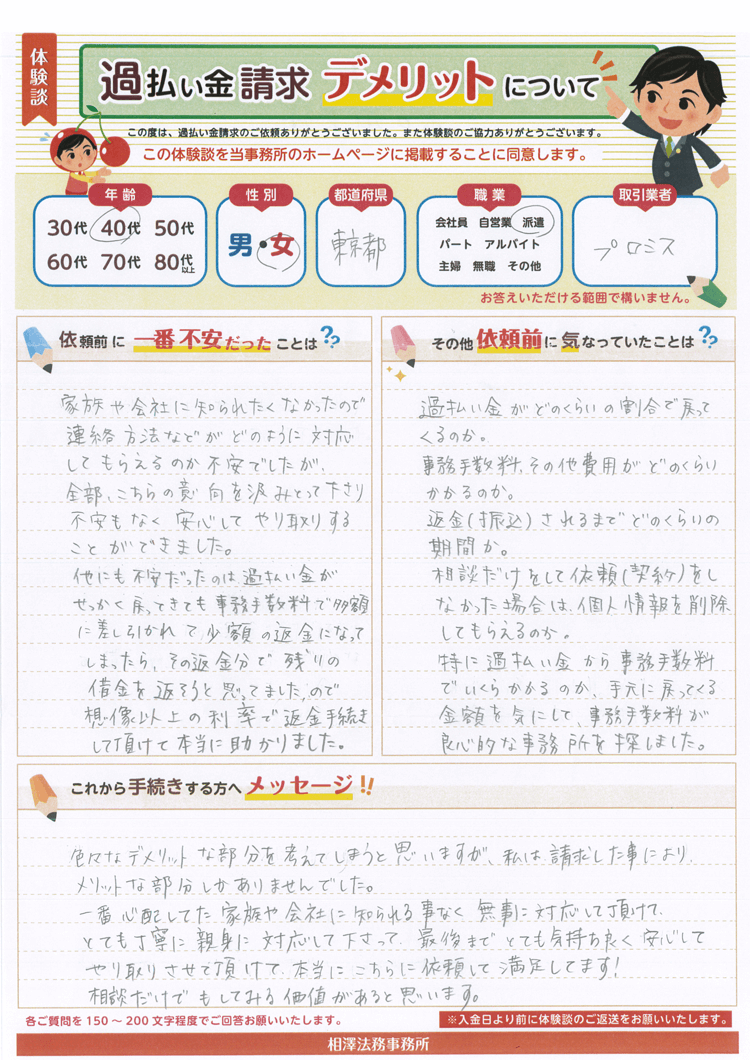 体験談
過払い金請求 デメリットについて
この度は、過払い金請求のご依頼ありがとうございました。また体験談のご協力ありがとうございます。
この体験談を当事務所のホームページに掲載することに同意します。
年齢
30代 40代 50代
60代 70代 80代以上
性別
男・女
都道府県
東京都
職業
会社員 自営業 派遣
パート アルバイト
主婦 無職 その他
取引業者
プロミス
お答えいただける範囲で構いません。
依頼前に一番不安だったことは??
家族や会社に知られたくなかったので
連絡方法などがどのように対応
してもらえるのか不安でしたが、
全部、こちらの意向を汲みとって下さり
不安もなく安心してやり取りする
ことができました。
他にも不安だったのは過払い金が
せっかく戻ってきても事務手数料で多額
に差し引かれて少額の返金になって
しまったら、その返金分で残りの
借金を返そうと思ってましたので
想像以上の利率で返金手続き
して頂けて本当に助かりました。
その他依頼前に気なっていたことは??
過払い金がどのくらいの割合で戻って
くるのか。
事務手数料、その他費用がどのくらい
かかるのか。
返金(振込)されるまでどのくらいの
期間か。
相談だけをして依頼(契約)をし
なかった場合は、個人情報を削除
してもらえるのか。
特に過払い金から事務手数料
でいくらかかるのか、手元に戻ってくる
金額を気にして、事務手数料が
良心的な事務所を探しました。
これから手続きする方へメッセージ!!
色々なデメリットな部分を考えてしまうと思いますが、私は請求した事により、
メリットな部分しかありませんでした。
一番心配してた家族や会社に知られる事なく無事に対応して頂けて、
とても丁寧に親身に対応して下さって、最後までとても気持ち良く安心して
やり取りさせて頂けて、本当にこちらに依頼して満足してます!
相談だけでもしてみる価値があると思います。
各ご質問を150～200文字程度でご回答お願いいたします。
※入金日より前に体験談のご返送をお願いいたします。
相澤法務事務所